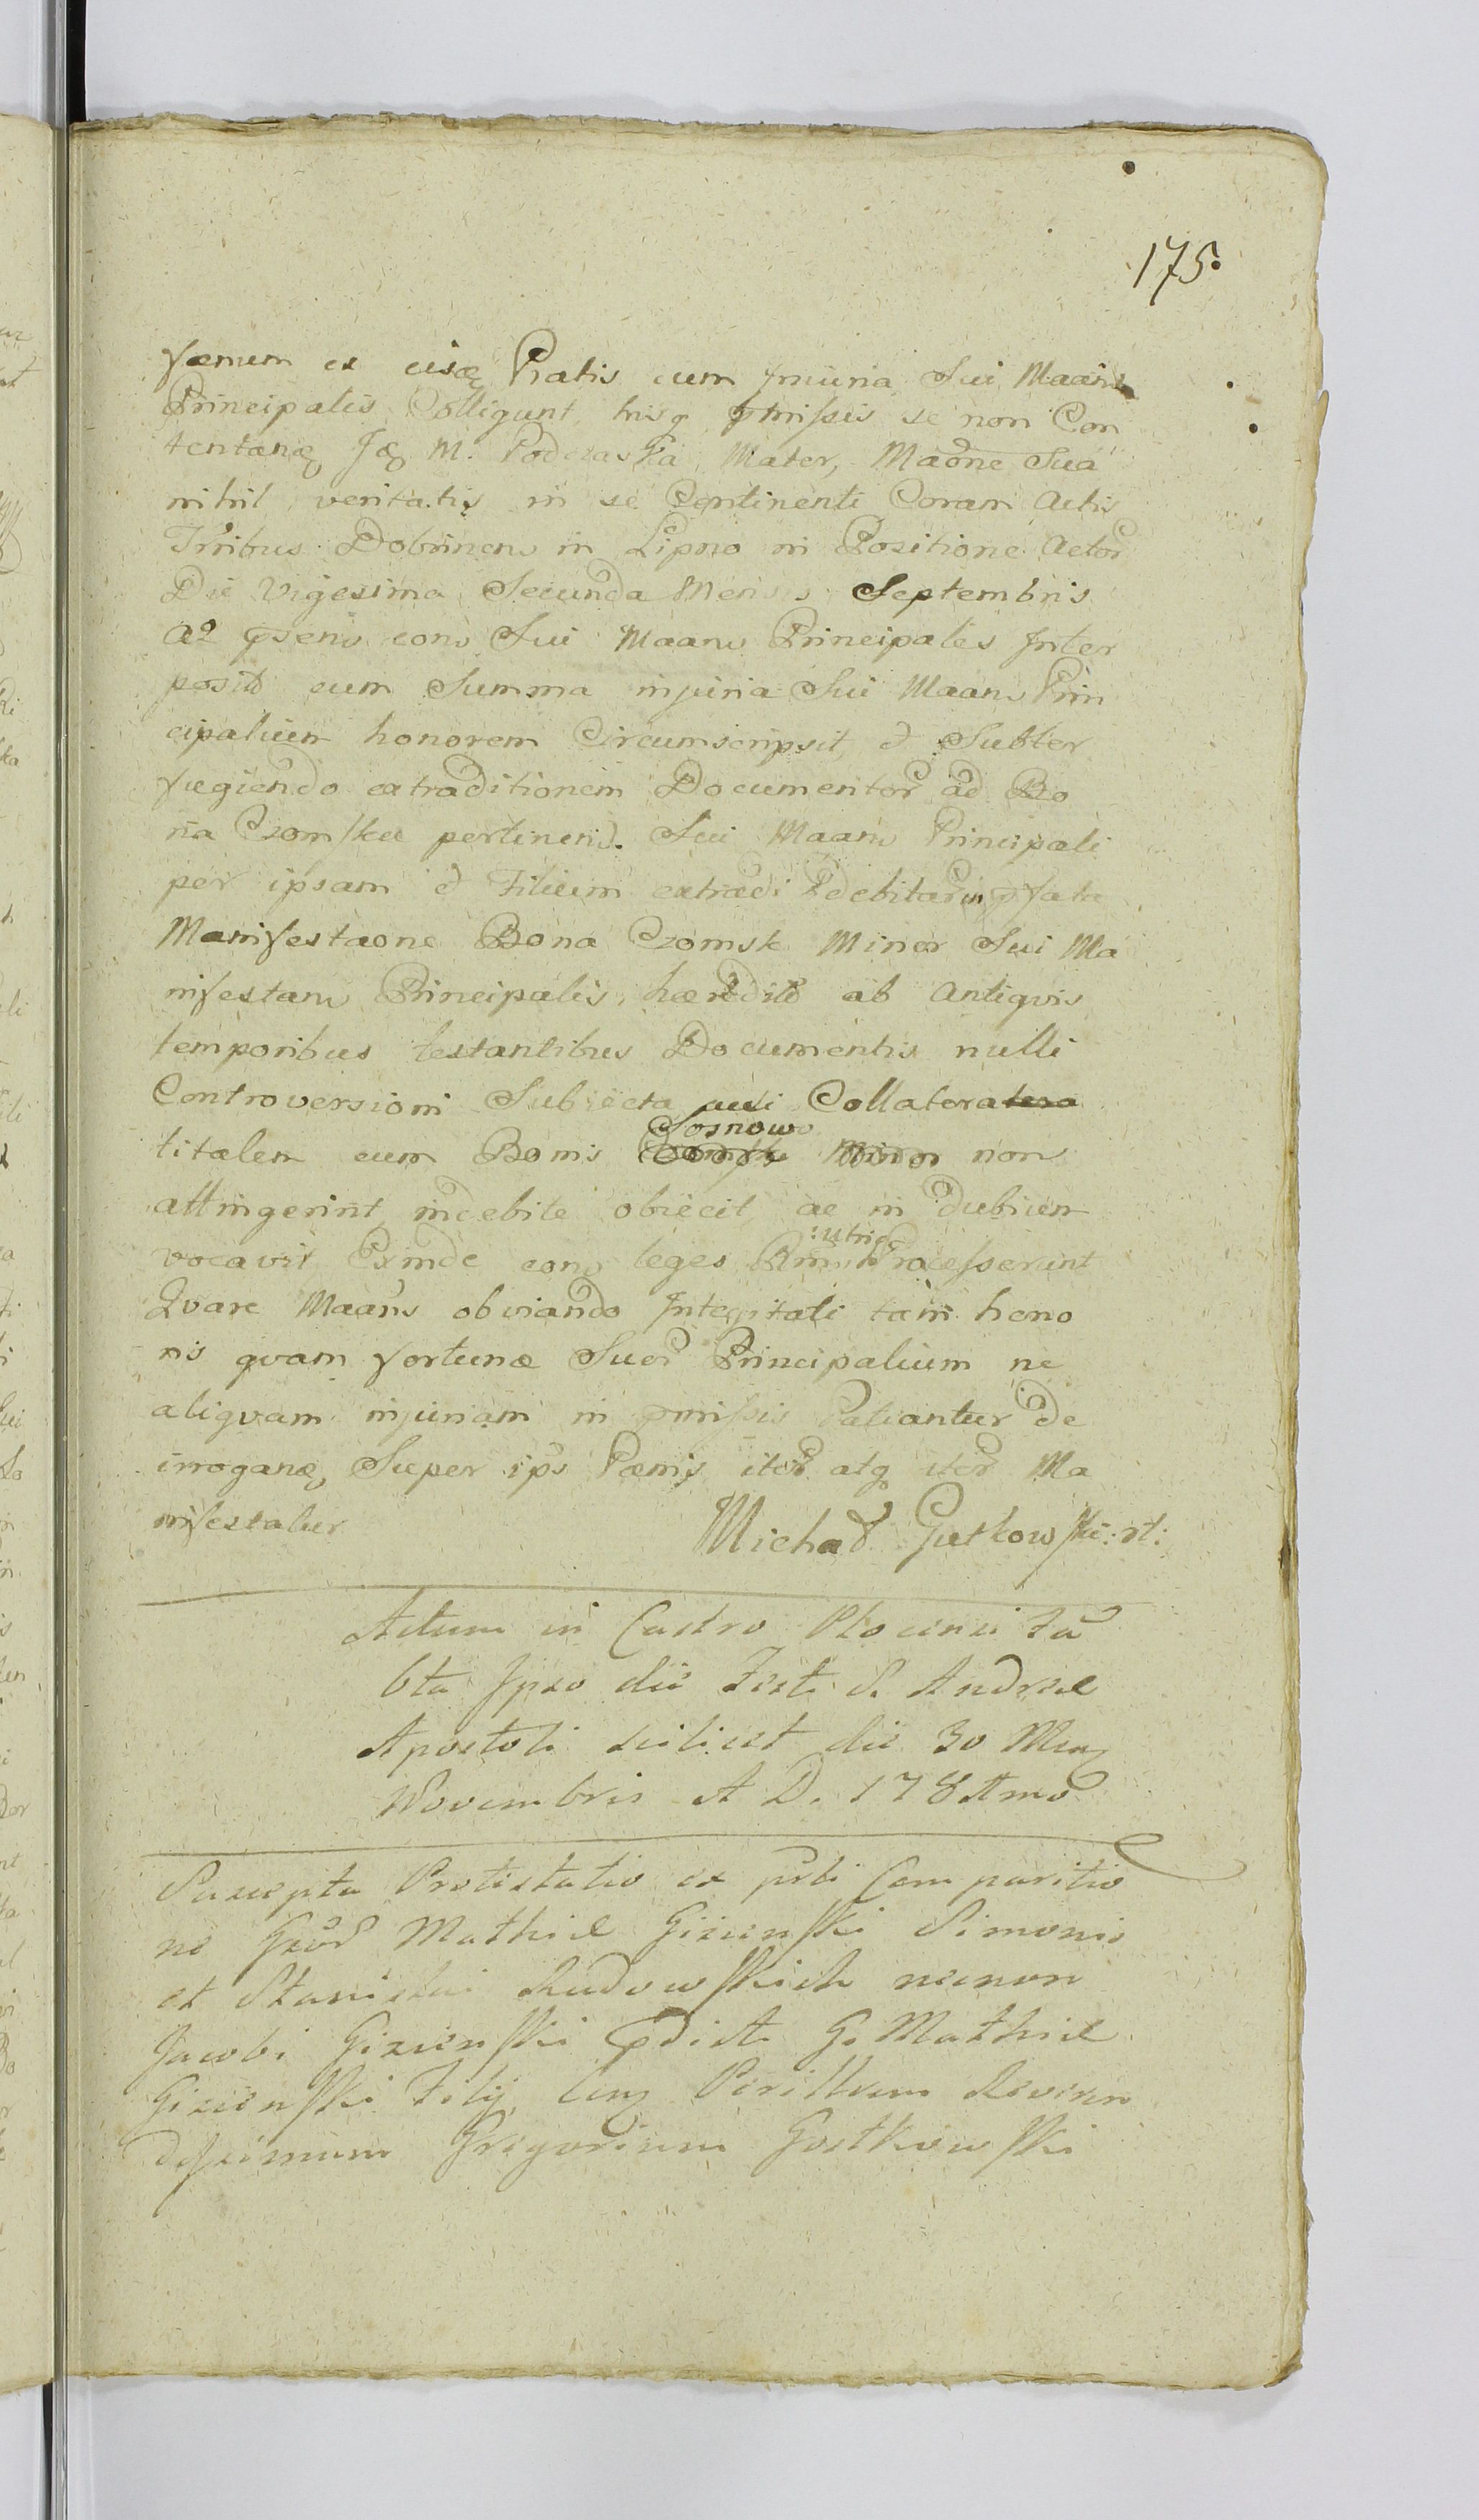 175.
fænum ex eisq Pratis cum Iniuria Sui Maans
Principalis Colligunt, hisq pmissis se non Con
tentanq Jq M. Podczaska Mater, Maõne Sua
nihil veritatis in se Continenti Coram Actis
Trribus Dobrinens in Lipno in Positione Actor
Die Vigesima Secunda Mensis Septembris
Ao psens cons Sui Maans Principales Inter
posita cum Summa injuria Sui Maans Prin
cipalium honorem Circumscripsit, et Subter
fugiendo extraditionem Documentor ad Bo
na Czomskie pertinens. Sui Maans Principali
per ipsam et Filium extradi debitar in pfata
Manifestaone Bona Czomsk Minor Sui Ma
nifestans Principalis, hæredita ab Antiquis
temporibus testantibus Documentis nulli
Controversioni Subiecta uti Collatera
Sosnowo
titalem cum Bonis non
attingerint, indebite obiecit, ac in dubium
:utriq
vocavit Exinde cons leges Processerunt
Quare Maans obviando Integritati tam hono
ris quam fortunæ Suor Principalium ne
aliquam injuriam in pmissis Patiantur de
irroganq Super ips Pænis iter atq iter Ma
nifestatur
Michał Gutkowski: rt:
Actum in Castro Plocensi Sa
bto Ipso die Festi S. Andreæ
Apostoli scilicet die 30 Mens
Novembris A D. 178
Suscepta Protestatio ex psti Comparitio
ne Gsor Mathiæ Giziński Simonis
et Stanislai Rudowskich necnon
Jacobi Gizienski pdicti G. Mathiæ
Gizienski Filij, Cons Perillrem Reveren
dissimum Gregorium Gostkowski